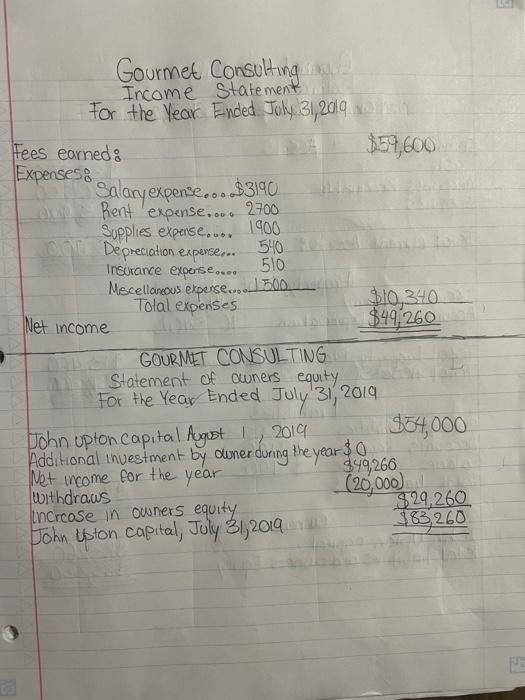 Gourmet Consulting
Income Statement
For the Year Ended July 31, 2019
Fees earned: $59,600
Expenses:
Salary expense.... $3190
Rent expense.... 2700
Supplies expense.... 1900
Depreciation expense... 540
Insurance expense..... 510
Mescellaneous expense..... 1500
Total expenses $10,340
Net income $49,260
GOURMET CONSULTING
Statement of owners equity
For the Year Ended July 31, 2019
John upton capital August 1, 2019 $54,000
Additional investment by owner during the year $0
Net income for the year $49,260
Withdraws (20,000)
increase in owners equity $29,260
John Upton capital, July 31, 2019 $83,260